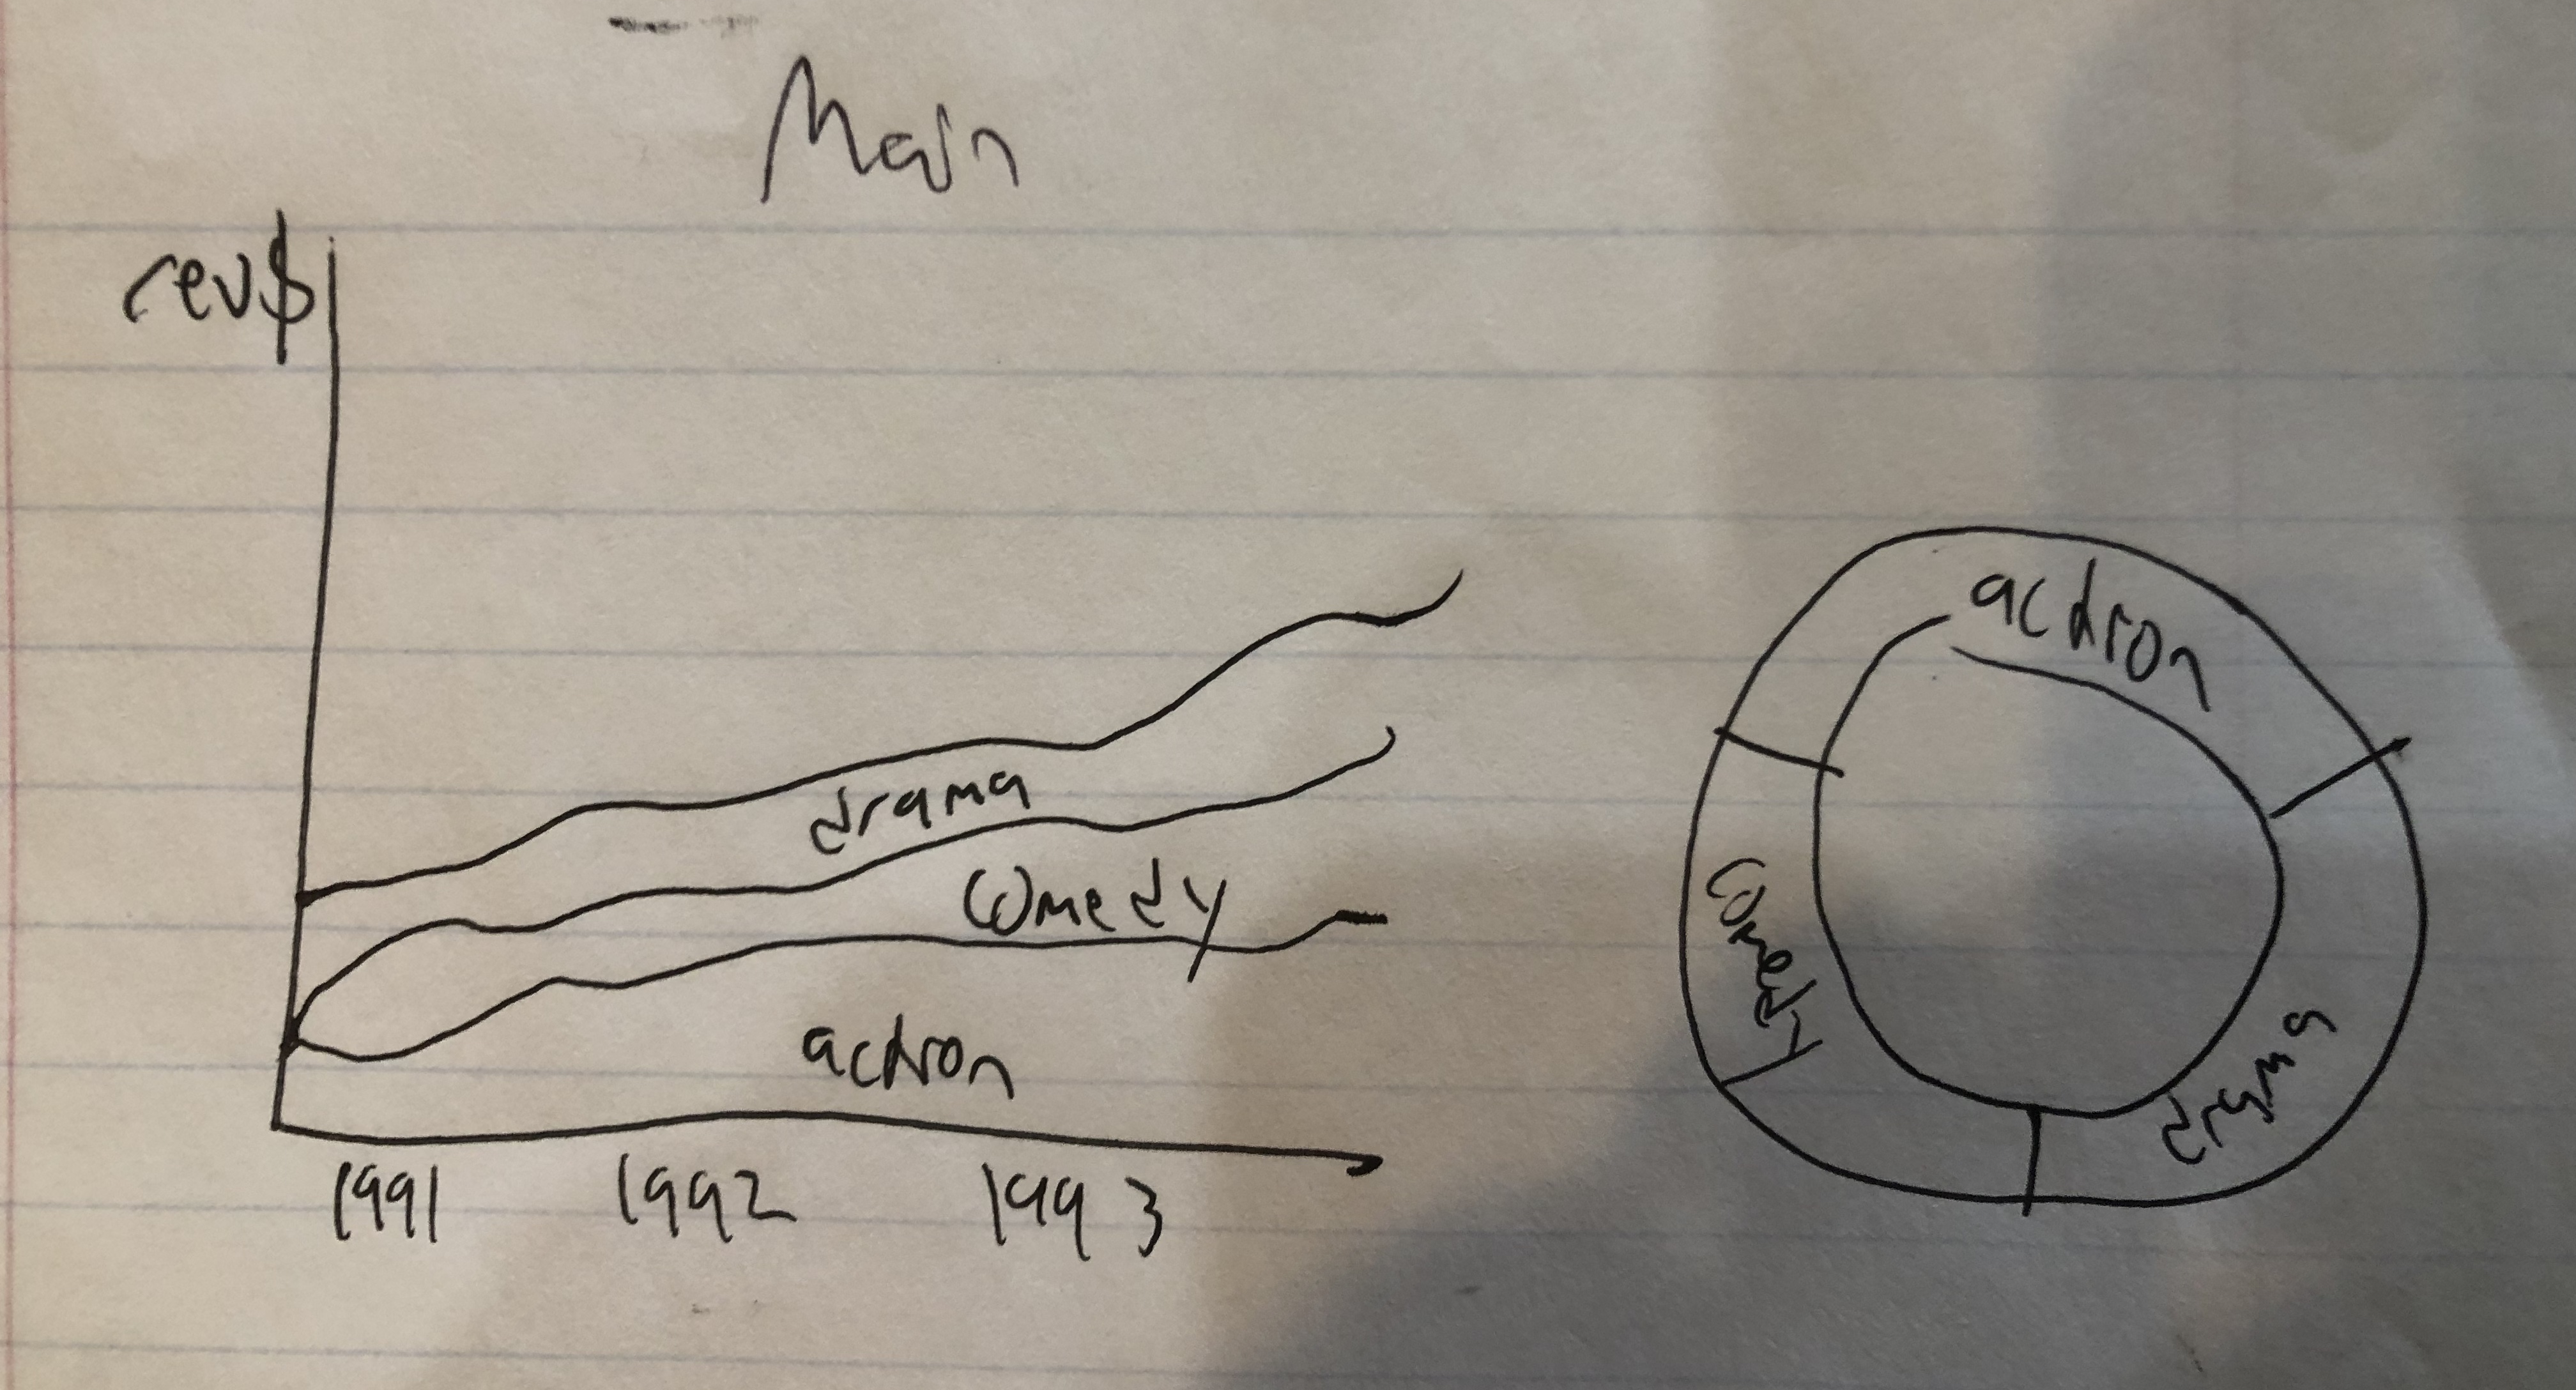 Main
rev$
drama
comedy
action
1991 1992 1993
action
comedy
drama